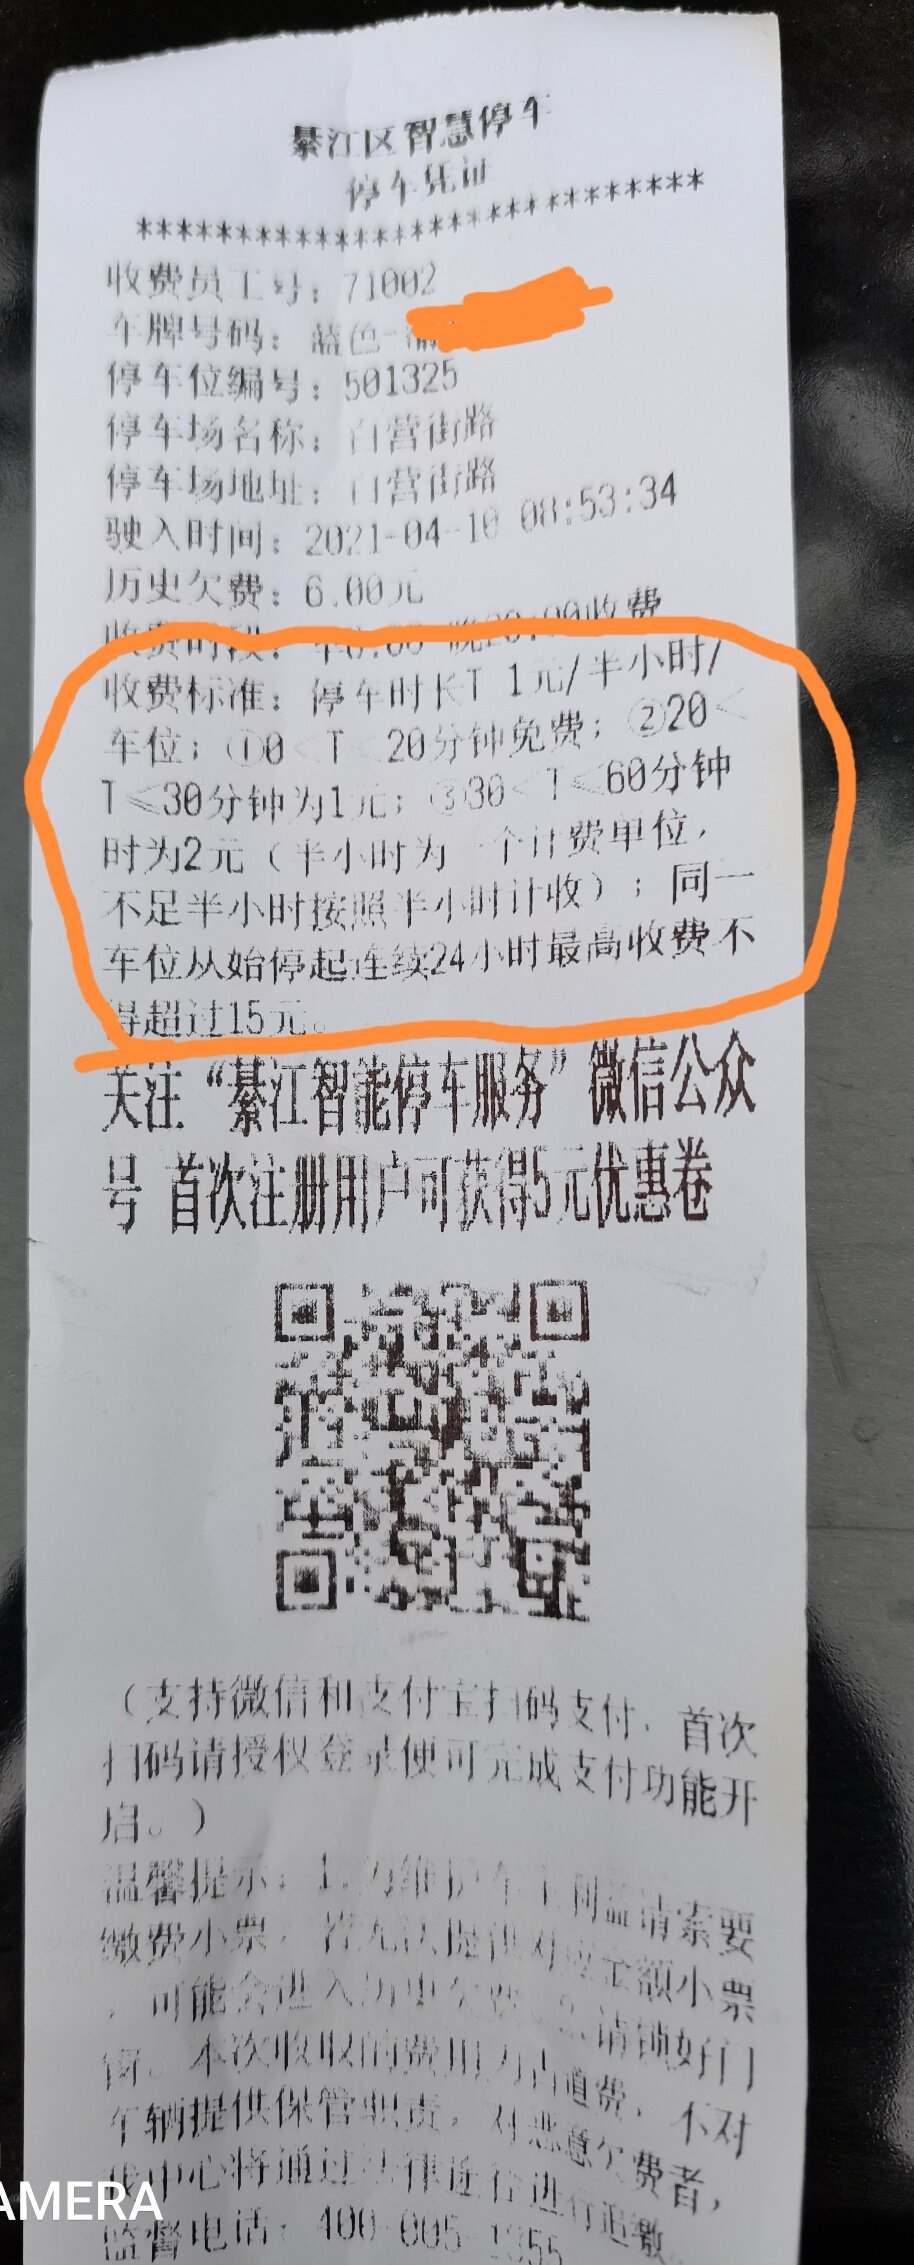 綦江区智慧停车
停车凭证
*****************************
收费员工号：71002
车牌号码：蓝色-渝
停车位编号：501325
停车场名称：百营街路
停车场地址：百营街路
驶入时间：2021-04-10 08:53:34
历史欠费：6.00元
收费时段：早8:00-晚20:00收费
收费标准：停车时长T 1元/半小时/
车位；①0<T<20分钟免费；②20<
T≤30分钟为1元；③30<T≤60分钟
时为2元（半小时为一个计费单位，
不足半小时按照半小时计收）；同一
车位从始停起连续24小时最高收费不
得超过15元。
关注“綦江智能停车服务”微信公众
号 首次注册用户可获得5元优惠卷
（支持微信和支付宝扫码支付，首次
扫码请授权登录便可完成支付功能开
启。）
温馨提示：1.为维护车主利益请索要
缴费小票，若无法提供对应金额小票
，可能会进入历史欠费。2.请锁好门
窗。本次收取的费用为占道费，不对
车辆提供保管职责，对恶意欠费者，
我中心将通过法律途径进行追缴。
监督电话：400-005-1355
AMERA